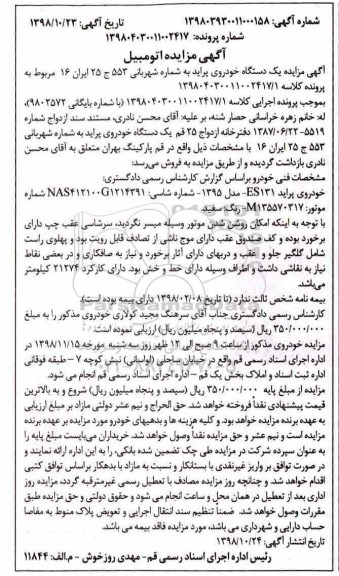 شماره آگهی: ۱۳۹۸۰۳۹۳۰۰۱۱۰۰۰۱۵۸ تاریخ آگهی: ۱۳۹۸/۱۰/۲۳
شماره پرونده: ۱۳۹۸۰۴۰۳۰۰۱۱۰۰۲۴۱۷
آگهی مزایده اتومبیل
آگهی مزایده یک دستگاه خودروی پراید به شماره شهربانی ۵۵۳ ج ۲۵ ایران ۱۶ مربوط به
پرونده کلاسه ۱۳۹۸۰۴۰۳۰۰۱۱۰۰۲۴۱۷/۱
بموجب پرونده اجرایی کلاسه ۱۳۹۸۰۴۰۳۰۰۱۱۰۰۲۴۱۷/۱ (با شماره بایگانی ۹۸۰۲۵۷۲)،
له: خانم زهره خراسانی حصار شنه، بر علیه: آقای محسن نادری، مستند سند ازدواج شماره
۵۵۱۹- ۱۳۸۷/۰۶/۲۲ دفترخانه ازدواج ۲۵ قم یک دستگاه خودروی پراید به شماره شهربانی
۵۵۳ ج ۲۵ ایران ۱۶ با مشخصات ذیل واقع در قم پارکینگ بهران متعلق به آقای محسن
نادری بازداشت گردیده و از طریق مزایده به فروش می‌رسد:
مشخصات فنی خودرو براساس گزارش کارشناس رسمی دادگستری:
خودروی پراید ES۱۳۱- مدل ۱۳۹۵- شماره شاسی: NAS۴۱۲۱۰۰G۱۲۱۴۳۹۱ شماره
موتور: M۱۳۵۵۷۰۳۱۷- رنگ: سفید
با توجه به اینکه امکان روشن شدن موتور وسیله میسر نگردید، سرشاسی عقب چپ دارای
برخورد بوده و کف صندوق عقب دارای موج ناشی از تصادف قابل رویت بود و پهلوی راست
شامل گلگیر جلو و عقب و دربهای دارای آثار برخورد و نیاز به صافکاری و در بعضی نقاط
نیاز به نقاشی داشت و اطراف وسیله دارای خط و خش بود. دارای کارکرد ۲۱۲۷۴ کیلومتر
می‌باشد.
بیمه نامه شخص ثالث ندارد (تا تاریخ ۱۳۹۸/۰۲/۰۸ دارای بیمه بوده است).
کارشناس رسمی دادگستری جناب آقای سرهنگ مجید کولاری خودروی مذکور را به مبلغ
۳۵۰/۰۰۰/۰۰۰ ریال (سیصد و پنجاه میلیون ریال) ارزیابی نموده است
مزایده خودروی مذکور از ساعت ۹ صبح الی ۱۲ ظهر روز سه شنبه مورخه ۱۳۹۸/۱۱/۱۵ در
اداره اجرای اسناد رسمی قم واقع در خیابان ساحلی (لواسانی) نبش کوچه ۷ – طبقه فوقانی
اداره ثبت اسناد و املاک بخش یک قم – اداره اجرای اسناد رسمی قم انجام می شود.
مزایده از مبلغ پایه ۳۵۰/۰۰۰/۰۰۰ ریال (سیصد و پنجاه میلیون ریال) شروع و به بالاترین
قیمت پیشنهادی نقداً فروخته خواهد شد. حق الحراج و نیم عشر دولتی مازاد بر مبلغ ارزیابی
به عهده برنده مزایده خواهد بود. و کلیه هزینه ها و بدهیهای خودرو مورد مزایده بر عهده برنده
مزایده است و نیم عشر و حق مزایده نقداً وصول خواهد شد. خریداران می‌بایست مبلغ پایه را
به عنوان سپرده شرکت در مزایده طی چک تضمین شده بانکی، را به این اداره ارائه نمایند و
در صورت توافق بر واریز غیرنقدی با بستانکار و نسبت به مازاد با بدهکار براساس توافق کتبی
اقدام خواهد شد. و چنانچه روز مزایده مصادف با تعطیل رسمی غیرمترقبه گردد، مزایده روز
اداری بعد از تعطیل در همان محل و ساعت انجام می شود و حقوق دولتی و حق مزایده طبق
مقررات وصول خواهد شد. ضمناً تنظیم سند انتقال اجرایی و تعویض پلاک منوط به مفاصا
حساب دارایی و شهرداری می باشد، مورد مزایده فاقد بیمه می باشد.
تاریخ انتشار آگهی: ۱۳۹۸/۱۰/۲۴
رئیس اداره اجرای اسناد رسمی قم- مهدی روزخوش - م.الف: ۱۱۸۴۴